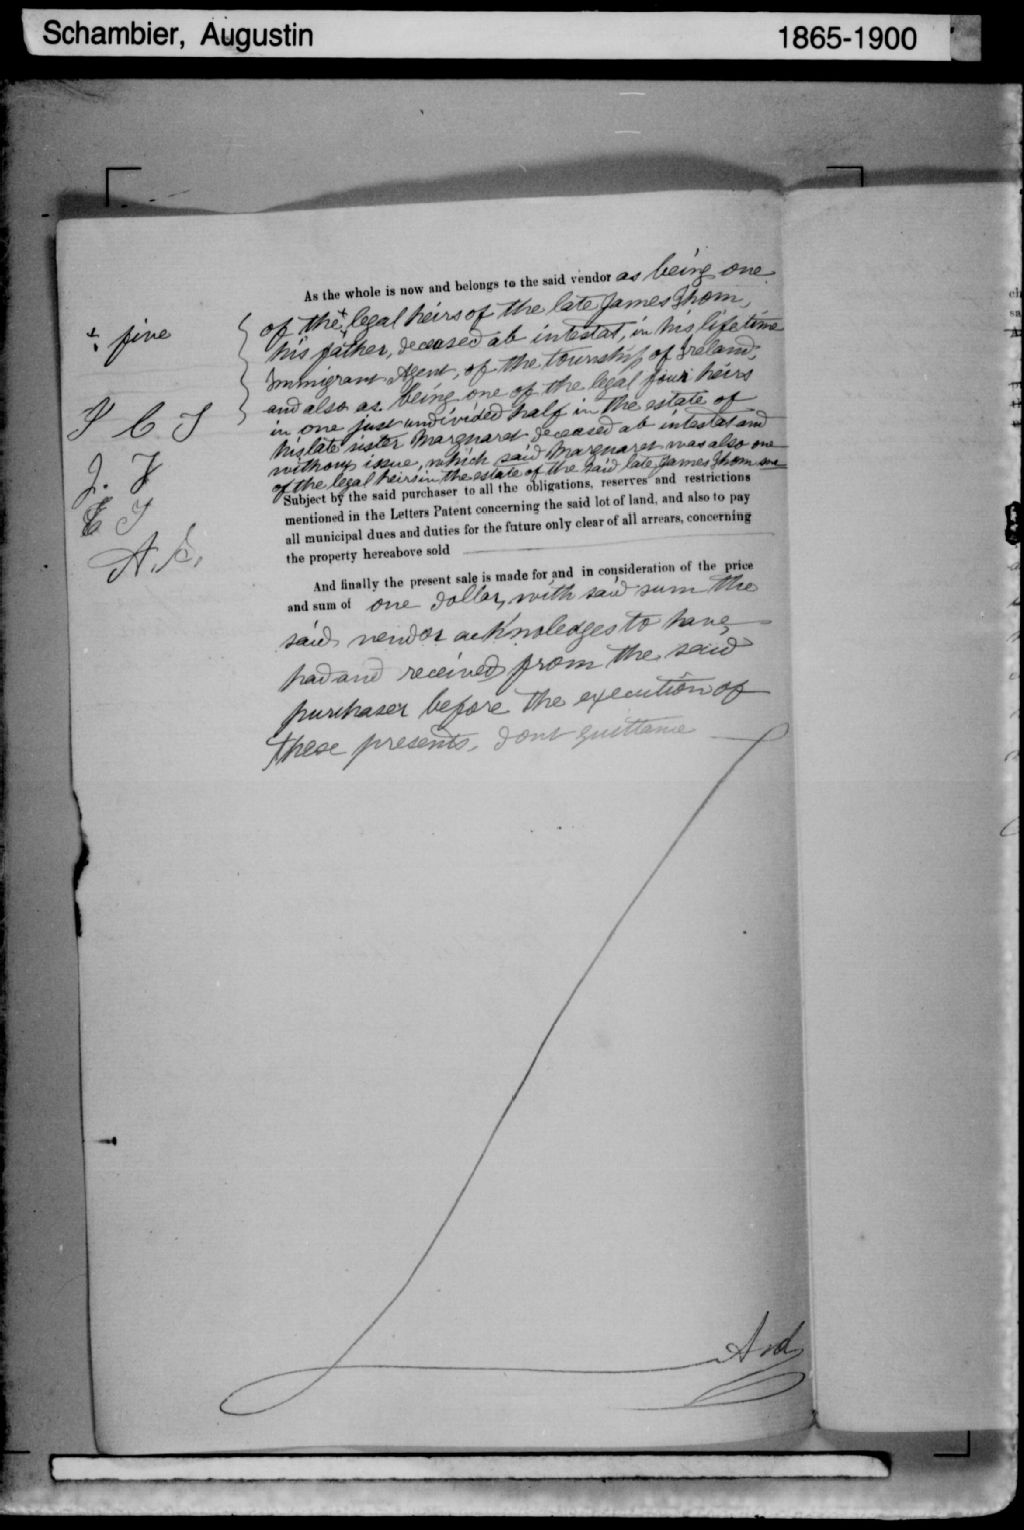 Schambier, Augustin 1865-1900
As the whole is now and belongs to the said vendor as being one
of the + legal heirs of the late James Thom,
+ five
his father, deceased ab intestat, in his lifetime
Immigrant Agent, of the township of Ireland,
and also as being one of the legal four heirs
in one just undivided half in the estate of
his late sister Marguaret deceased ab intestat and
without issue, which said Marguaret was also one
of the legal heirs in the estate of the said late James Thom
T C T
J. T
E T
A. S.
Subject by the said purchaser to all the obligations, reserves and restrictions
mentioned in the Letters Patent concerning the said lot of land, and also to pay
all municipal dues and duties for the future only clear of all arrears, concerning
the property hereabove sold
And finally the present sale is made for and in consideration of the price
and sum of one dollar, with said sum the
said vendor acknoledges to have
had and received from the said
purchaser before the execution of
these presents, dont quittance
And